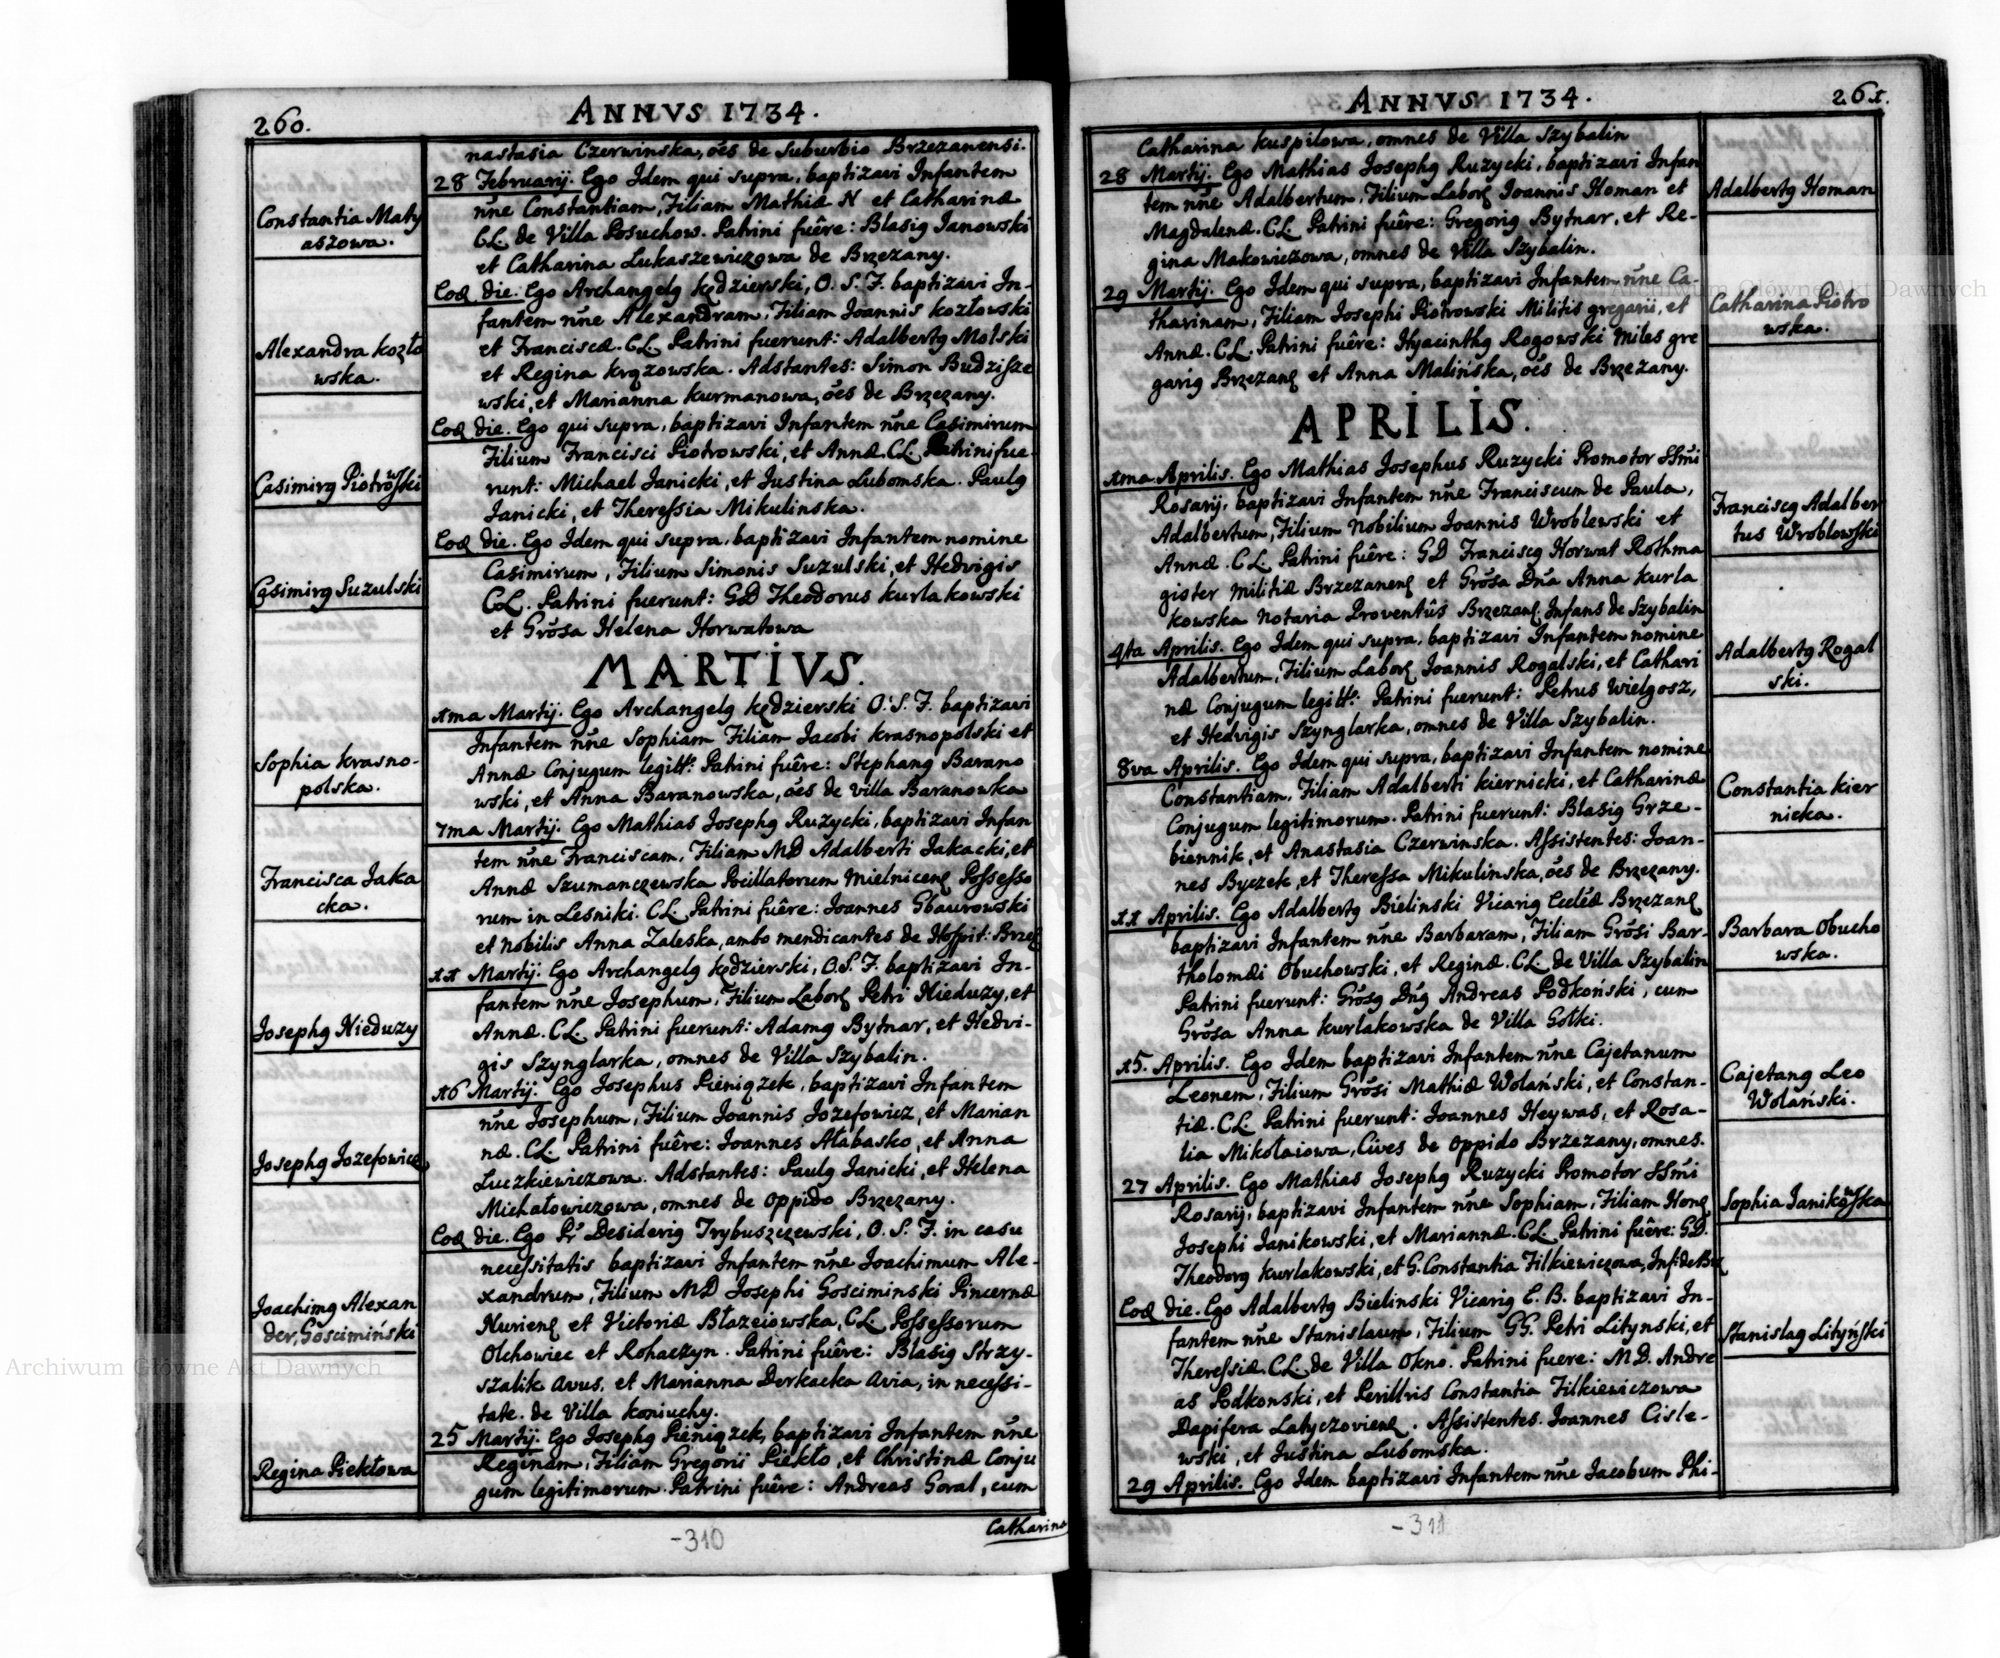 260.
ANNVS 1734.
nastasia Czerwinska, oẽs de Suburbio Brzezanensi.
Constantia Maty
aszowa.
28 Februarij. Ego Idem qui supra, baptizavi Infantem
nñe Constantiam, Filiam Mathiæ N et Catharinæ
CL. de Villa Posuchow. Patrini fuêre: Blasig Janowski
et Catharina Lukaszewiczowa de Brzezany.
Alexandra Kozło
wska.
Eod die. Ego Archangelg Kędzierski, O. S. F. baptizavi In-
fantem nñe Alexandram, Filiam Joannis Kozłowski
et Franciscæ. CL. Patrini fuerunt: Adalbertg Molski
et Regina Krązowska. Adstantes: Simon Budzisze
wski, et Marianna Kurmanowa, oẽs de Brzezany.
Casimirg Piotrowski
Eod die. Ego qui supra, baptizavi Infantem nñe Casimirum
Filium Francisci Piotrowski, et Annæ. CL. Patrini fue-
runt: Michael Janicki, et Justina Lubomska. Paulg
Janicki, et Theressia Mikulinska.
Casimirg Suzulski
Eod die. Ego Idem qui supra, baptizavi Infantem nomine
Casimirum, Filium Simonis Suzulski, et Hedvigis
CL. Patrini fuerunt: GD Theodorus Kurlakowski
et Grõsa Helena Horwatowa
MARTIVS.
Sophia Krasno-
polska.
1ma Martij. Ego Archangelg Kędzierski O. S. F. baptizavi
Infantem nñe Sophiam Filiam Jacobi Krasnopolski et
Annæ Conjugum legitt: Patrini fuêre: Stephang Barano
wski, et Anna Baranowska, oẽs de villa Baranowka
Francisca Jaka
cka.
7ma Martij. Ego Mathias Josephg Ruzycki, baptizavi Infan
tem nñe Franciscam, Filiam MD Adalberti Jakacki, et
Annæ Szumanczewska Pocillatorum Mielnicen Possesso
rum in Lesniki. CL. Patrini fuêre: Joannes Gbaurowski
et nobilis Anna Zaleska, ambo mendicantes de Hospit: Brzeż
Josephg Nieduzy
11 Martij. Ego Archangelg Kędzierski, O. S. F. baptizavi In-
fantem nñe Josephum, Filium Labor Petri Nieduzy, et
Annæ. CL. Patrini fuerunt: Adamg Bytnar, et Hedvi-
gis Szynglarka, omnes de Villa Szybalin.
Josephg Jozefowicz
16 Martij. Ego Josephus Pieniązek, baptizavi Infantem
nñe Josephum, Filium Joannis Jozefowicz, et Marian
næ. CL. Patrini fuêre: Joannes Ałabasko, et Anna
Luczkiewiczowa. Adstantes: Paulg Janicki, et Helena
Michałowiczowa, omnes de oppido Brzezany.
Joachimg Alexan
der, Gosciminński
Eod die. Ego Pr̃ Desiderig Trybuszczewski, O. S. F. in casu
necessitatis baptizavi Infantem nñe Joachimum Ale-
xandrum, Filium MD Josephi Gosciminski Pincernæ
Nurien et Victoriæ Błazeiowska, CL. Possessorum
Olchowiec et Rohaczyn. Patrini fuêre: Blasig Strzy-
szalik avus, et Marianna Derkacka avia, in necessi-
tate. de Villa Koniuchy.
Regina Piekłowa
25 Martij. Ego Josephg Pieniązek, baptizavi Infantem nñe
Reginam, Filiam Gregorii Piekło, et Christinæ Conju
gum legitimorum. Patrini fuêre: Andreas Goral, cum
Catharina
-310
ANNVS 1734.
261.
Catharina Kuspilowa, omnes de Villa Szybalin
28 Martij. Ego Mathias Josephg Ruzycki, baptizavi Infan
tem nñe Adalbertum, Filium Labor Joannis Homan et
Magdalenæ. CL. Patrini fuêre: Gregorig Bytnar, et Re-
gina Makowiczowa, omnes de Villa Szybalin.
Adalbertg Homan
29 Martij. Ego Idem qui supra, baptizavi Infantem nñe Ca-
tharinam, Filiam Josephi Piotrowski Militis gregarii, et
Annæ. CL. Patrini fuêre: Hyacinthg Rogowski Miles gre
garig Brzezan et Anna Malińska, oẽs de Brzezany.
Catharina Piotro
wska.
APRILIS.
1ma Aprilis. Ego Mathias Josephus Ruzycki Promotor SSmi
Rosarij, baptizavi Infantem nñe Franciscum de Paula,
Adalbertum, Filium Nobilium Joannis Wroblewski et
Annæ. CL. Patrini fuêre: GD Franciscg Horwat Rothma
gister militiæ Brzezanen et Grõsa Dña Anna Kurla
kowska Notaria Proventûs Brzezan. Infans de Szybalin
Franciscg Adalber
tus Wroblowski
4ta Aprilis. Ego Idem qui supra, baptizavi Infantem nomine
Adalbertum, Filium Labor Joannis Rogalski, et Cathari
næ Conjugum legitt: Patrini fuerunt: Petrus Wielgosz,
et Hedvigis Szynglarka, omnes de Villa Szybalin.
Adalbertg Rogal
ski.
8va Aprilis. Ego Idem qui supra, baptizavi Infantem nomine
Constantiam, Filiam Adalberti Kiernicki, et Catharinæ
Conjugum legitimorum. Patrini fuerunt: Blasig Grze-
biennik, et Anastasia Czerwinska. Assistentes: Joan-
nes Byczek, et Theressa Mikulinska, oẽs de Brzezany.
Constantia Kier
nicka.
11 Aprilis. Ego Adalbertg Bielinski Vicarig Ecclæ Brzezan
baptizavi Infantem nñe Barbaram, Filiam Grõsi Bar-
tholomæi Obuchowski, et Reginæ. CL. de Villa Szybalin
Patrini fuerunt: Grõsg Dñg Andreas Podkoński, cum
Grõsa Anna Kurlakowska de Villa Gołki.
Barbara Obucho
wska.
15. Aprilis. Ego Idem baptizavi Infantem nñe Cajetanum
Leonem, Filium Grõsi Mathiæ Wolański, et Constan-
tiæ. CL. Patrini fuerunt: Joannes Heywas, et Rosa-
lia Mikołaiowa, Cives de oppido Brzezany, omnes.
Cajetang Leo
Wolański.
27 Aprilis. Ego Mathias Josephg Ruzycki Promotor SSmi
Rosarij, baptizavi Infantem nñe Sophiam, Filiam Hon
Josephi Janikowski, et Mariannæ. CL. Patrini fuêre: GD.
Theodorg Kurlakowski, et G. Constantia Filkiewiczowa, Inf: de Brz
Sophia Janikowska
Eod die. Ego Adalbertg Bielinski Vicarig E. B. baptizavi In-
fantem nñe Stanislaum, Filium GG. Petri Litynski, et
Theressiæ. CL. de Villa Okno. Patrini fuere: M D. Andre
as Podkonski, et Perillvis Constantia Filkiewiczowa
Dapifera Latyczovien. Assistentes. Joannes Cisle-
wski, et Justina Lubomska.
Stanislag Lityński
29 Aprilis. Ego Idem baptizavi Infantem nñe Jacobum Phi-
-311
Archiwum Główne Akt Dawnych
Archiwum Główne Akt Dawnych